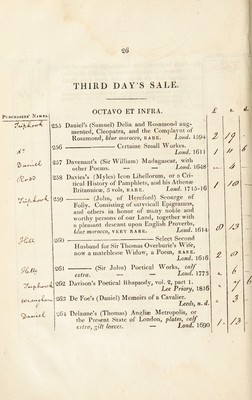 26
THIRD DAY'S SALE.
PURCHASERS' NAMES.
OCTAVO ET INFRA.
£ s. d.
255 Daniel's (Samuel) Delia and Rosamond aug-
mented, Cleopatra, and the Complaynt of
Rosamond, blue morocco, RARE. Lond. 1594
2 19
256 ——— Certaine Small Workes.
Lond. 1611
1 11 6
Daniell
257 Davenant's (Sir William) Madagascar, with
other Poems. — Lond. 1648
4
Rodd
258 Davies's (Myles) Icon Libellorum, or a Cri-
tical History of Pamphlets, and his Athenæ
Britannicæ, 3 vols, RARE. Lond. 1715-16
1 10
259 ——— (John, of Hereford) Scourge of
Folly. Consisting of satyricall Epigrams,
and others in honor of many noble and
worthy persons of our Land, together with
a pleasant descant upon English Proverbs,
blue morocco, VERY RARE. Lond. 1614
8 13
260 ——— Select Second
Husband for Sir Thomas Overburie's Wife,
now a matchlesse Widow, a Poem, RARE.
Lond. 1616
2 0
261 ——— (Sir John) Poetical Works, calf
extra. — — Lond. 1773
6
262 Davison's Poetical Rhapsody, vol. 2, part 1.
Lee Priory, 1816
7 6
263 De Foe's (Daniel) Memoirs of a Cavalier.
Leeds, n. d.
3
Daniel
264 Delaune's (Thomas) Angliæ Metropolis, or
the Present State of London, plates, calf
extra, gilt leaves. — Lond. 1690
1 13